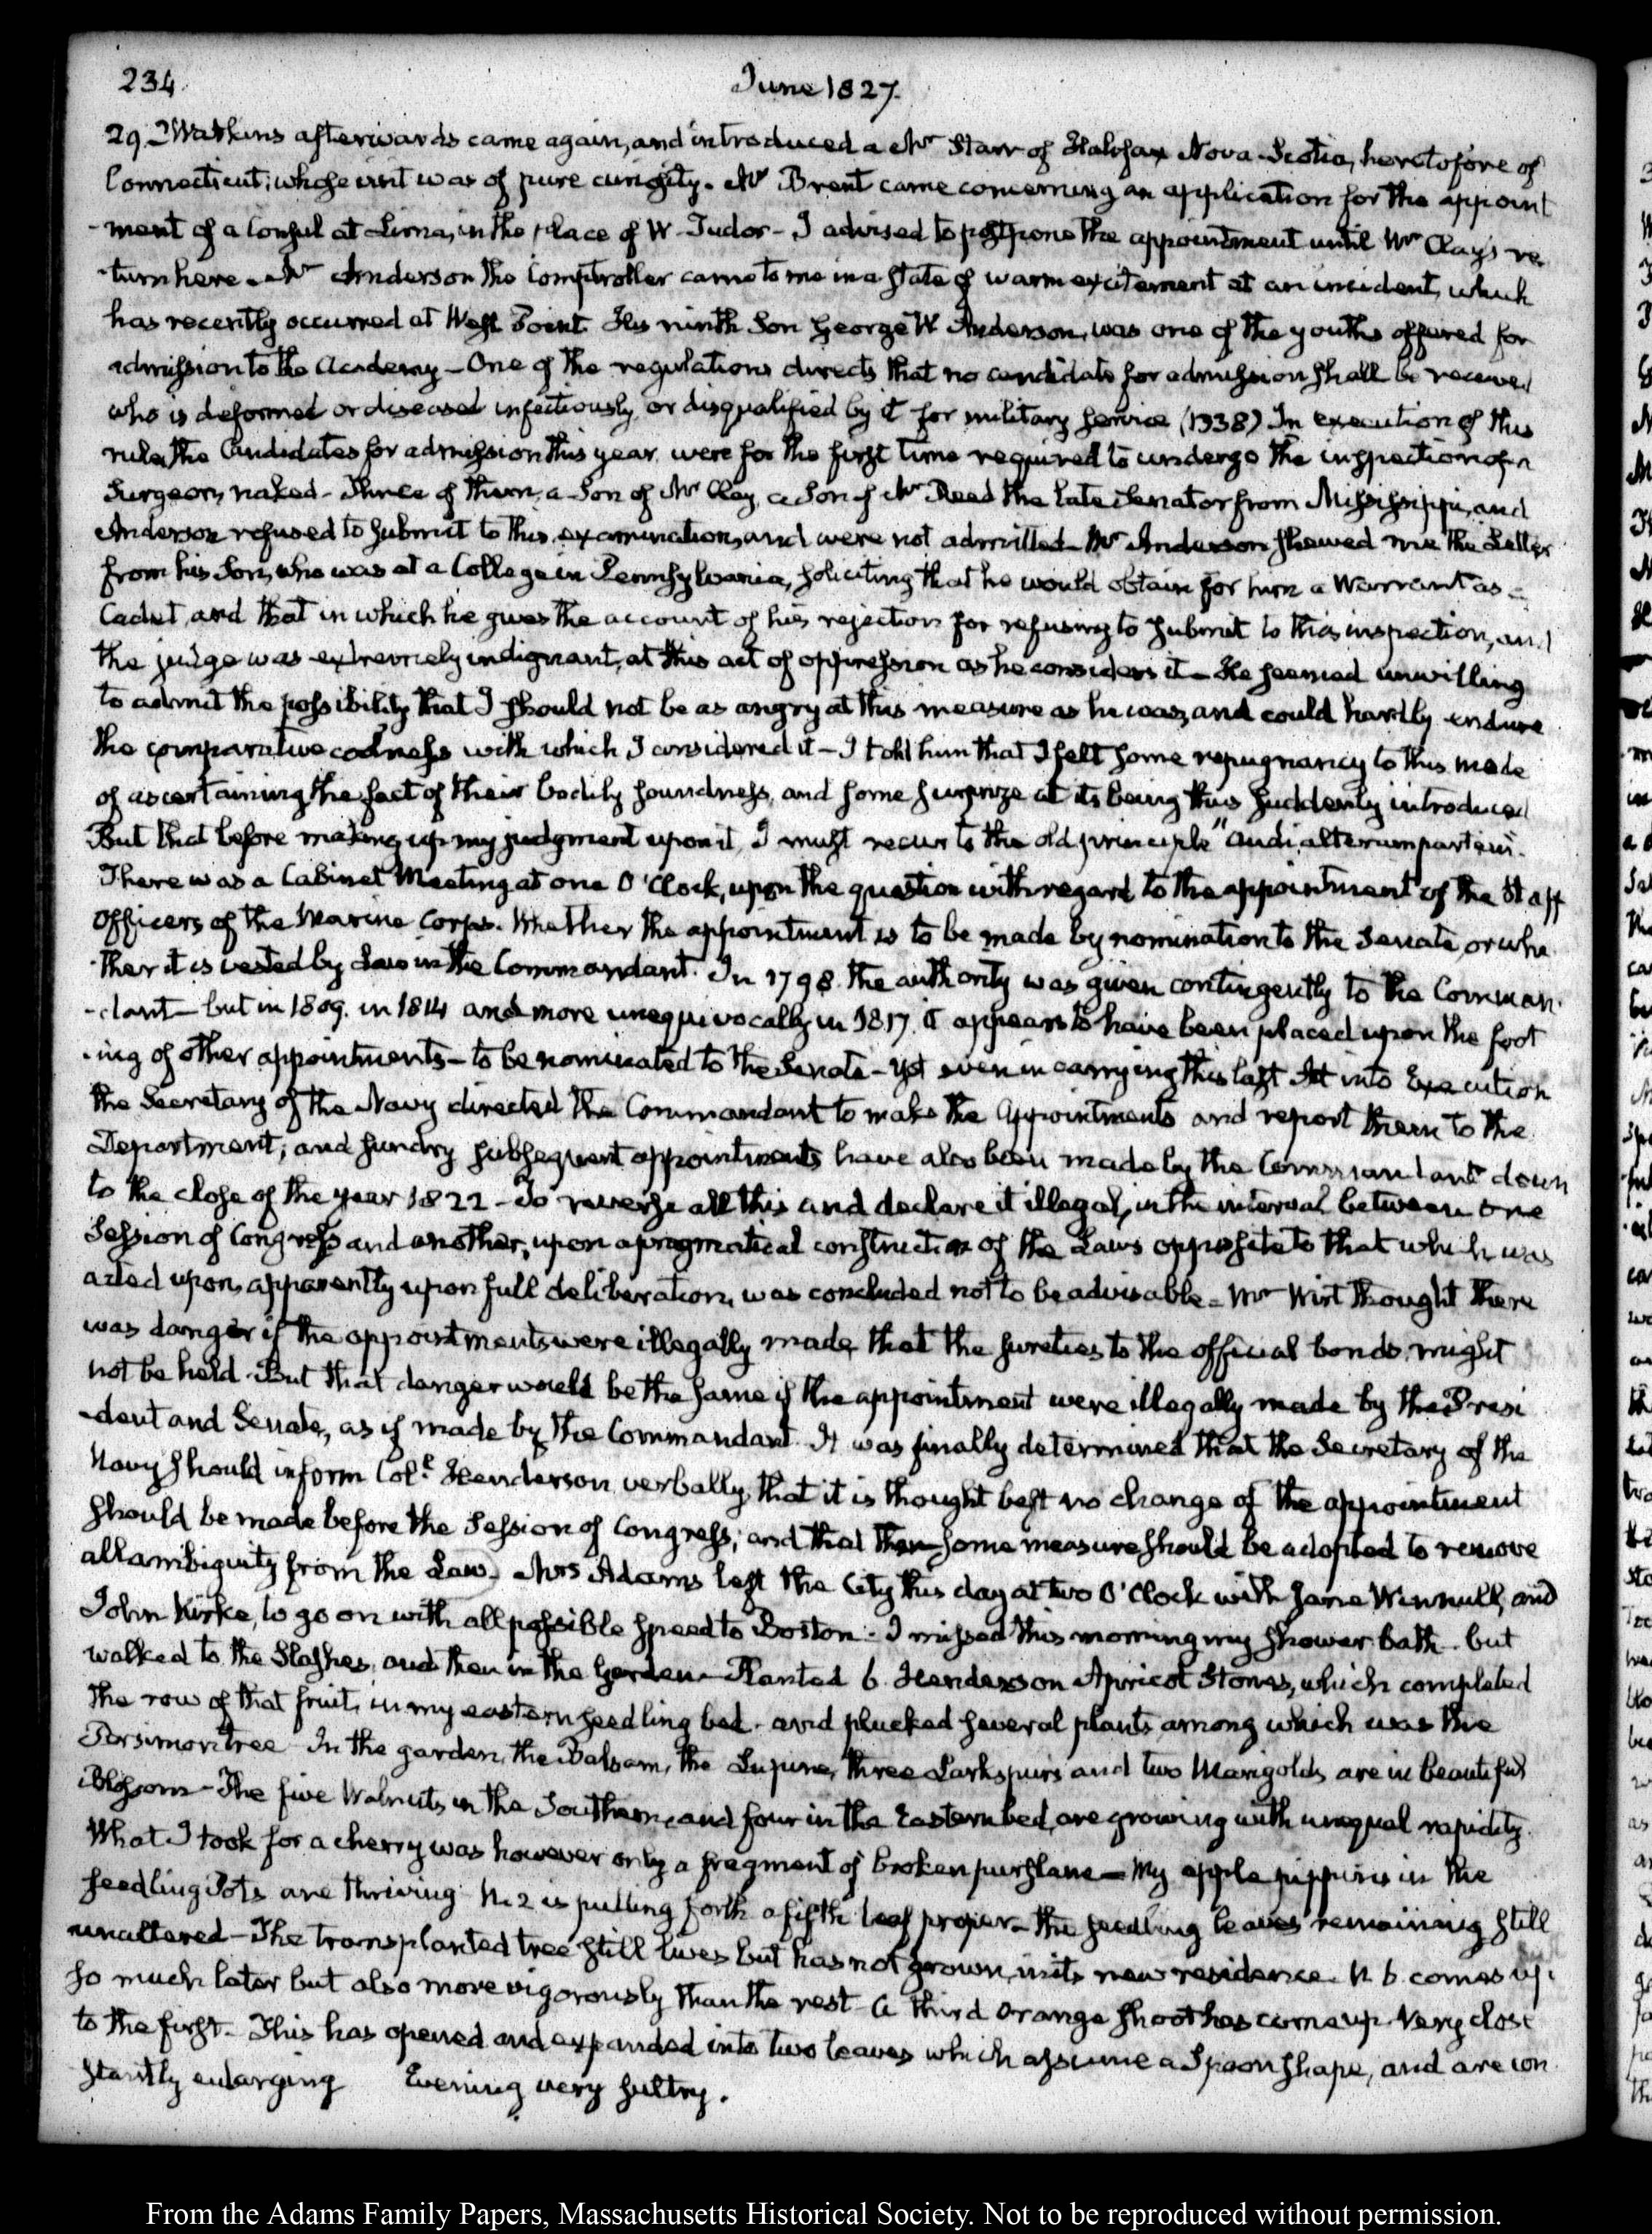 234
June 1827.
29. Watkins afterwards came again, and introduced a Mr Starr of Halifax Nova-Scotia, heretofore of
Connecticut; whose visit was of pure curiosity. Mr Brent came concerning an application for the appoint
-ment of a Consul at Lima, in the place of W. Tudor - I advised to postpone the appointment until Mr Clay's re
-turn here. Mr Anderson the Comptroller came to me in a state of warm excitement at an incident, which
has recently occurred at West Point. His ninth Son George W Anderson, was one of the youths offered for
admission to the Academy - One of the regulations directs that no candidate for admission shall be received
who is deformed or diseased infectiously, or disqualified by it for military service (1338) In execution of this
rule, the Candidates for admission this year, were for the first time required to undergo the inspection of a
Surgeon, naked - Three of them, a Son of Mr Clay, a Son of Mr Reed the late Senator from Mississippi, and
Anderson refused to submit to this examination, and were not admitted - Mr Anderson shewed me the Letter
from his Son, who was at a College in Pennsylvania, soliciting that he would obtain for him a Warrant as a
Cadet, and that in which he gives the account of his rejection for refusing to submit to this inspection, and
the judge was extremely indignant, at this act of oppression as he considers it - He seemed unwilling
to admit the possibility that I should not be as angry at this measure as he was, and could hardly endure
the comparative coolness with which I considered it - I told him that I felt some repugnancy to this mode
of ascertaining the fact of their bodily soundness, and some surprize at its being thus suddenly introduced
But that before making up my judgment upon it, I must recur to the old principle "audi alteram partem.
There was a Cabinet Meeting at one O'Clock, upon the question with regard to the appointment of the Staff
Officers of the Marine Corps. Whether the appointment is to be made by nomination to the Senate, or whe
-ther it is vested by Law in the Commandant. In 1798 the authority was given contingently to the Comman
-dant - but in 1809. in 1814 and more unequivocally in 1817. it appears to have been placed upon the foot
-ing of other appointments - to be nominated to the Senate - yet even in carrying this last Act into Execution
the Secretary of the Navy directed the Commandant to make the Appointments and report them to the
Department; and sundry subsequent appointments have also been made by the Commandant down
to the close of the year 1822 - To reverse all this and declare it illegal, in the interval between one
Session of Congress and another, upon a pragmatical construction of the Laws opposite to that which was
acted upon, apparently upon full deliberation, was concluded not to be advisable - Mr Wirt thought there
was danger if the appointments were illegally made, that the sureties to the official bonds might
not be held. But that danger would be the same if the appointment were illegally made by the Presi
-dent and Senate, as if made by the Commandant. It was finally determined that the Secretary of the
Navy should inform Coll. Henderson verbally, that it is thought best no change of the appointment
should be made before the Session of Congress; and that then some measure should be adopted to remove
all ambiguity from the Law. Mrs Adams left the City this day at two O'Clock with Jane Winnull, and
John Kirke, to go on with all possible speed to Boston - I missed this morning my shower bath - but
walked to the Slashes, and then in the Garden - Planted 6. Henderson Apricot Stones, which completed
the row of that fruit, in my eastern seedling bed - and plucked several plants among which was the
Persimon tree - In the garden, the Balsam, the Lupine, three Larkspurs and two Marigolds are in beautiful
Blossom - The five Walnuts in the Southern, and four in the Eastern bed, are growing with unequal rapidity
What I took for a cherry was however only a fragment of broken purslane - My apple pippins in the
seedling Pots are thriving N. 2 is putting forth a fifth leaf proper - the seedling leaves remaining still
unaltered - The transplanted tree still lives but has not grown, in its new residence. N. 6. comes up.
so much later but also more vigorously than the rest - A third Orange shoot has come up. Very close
to the first - This has opened and expanded into two leaves which assume a Spoon shape, and are con
stantly enlarging Evening very sultry.
From the Adams Family Papers, Massachusetts Historical Society. Not to be reproduced without permission.